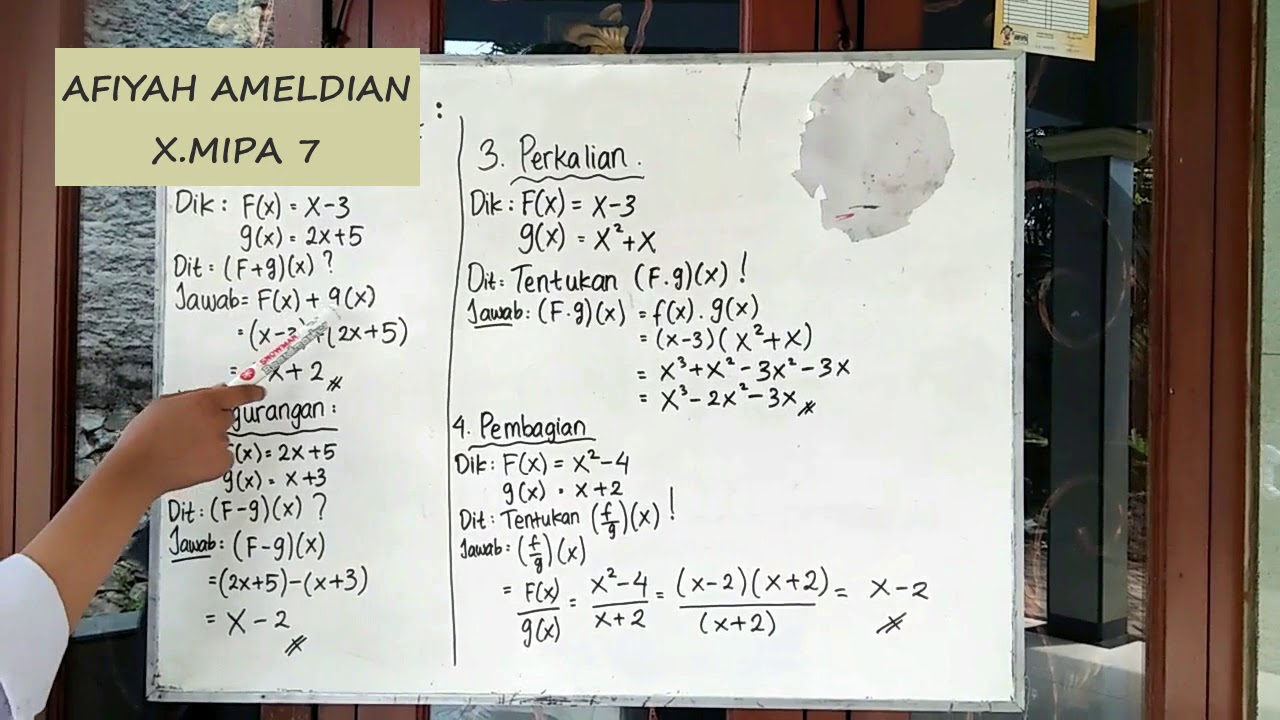 AFIYAH AMELDIAN
X.MIPA 7
Dik : F(x) = x-3
g(x) = 2x+5
Dit = (F+g)(x) ?
Jawab = F(x) + g(x)
= (x-3)+(2x+5)
= x+2
gurangan :
(x) = 2x+5
g(x) = x+3
Dit : (F-g)(x) ?
Jawab : (F-g)(x)
=(2x+5)-(x+3)
= x-2
3. Perkalian.
Dik : F(x) = x-3
g(x) = x²+x
Dit : Tentukan (F.g)(x) !
Jawab : (F.g)(x) = f(x) . g(x)
= (x-3)(x²+x)
= x³+x²-3x²-3x
= x³-2x²-3x
4. Pembagian
Dik : F(x) = x²-4
g(x) = x+2
Dit : Tentukan (f/g)(x) !
Jawab : (f/g)(x)
= F(x)/g(x) = x²-4/x+2 = (x-2)(x+2)/(x+2) = x-2
SNOWMAN